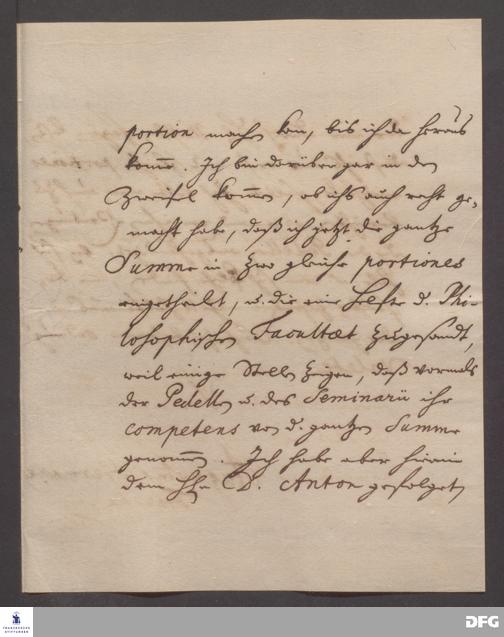 portion machen kan, bis ich da heraus
komme. Ich bin darüber gar in den
Zweifel kommen, ob ichs auch recht ge-
macht habe, daß ich jetzt die gantze
Summe in zwo gleiche portiones
eingetheilet, u. die eine Helfte d. Phi-
losophischen Facultæt zugesandt,
weil einige Stellen zeigen, daß vormals
der Pedell u. des Seminarii ihr
competens von d. gantzen Summe
genommen. Ich habe aber hierin
dem Hn. D. Anton gefolget
FRANCKESCHE
STIFTUNGEN
DFG